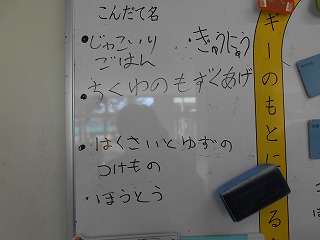 こんだて名
・じゃこいり ・ぎゅうにゅう
ごはん
・ちくわのもずくあげ
・はくさいとゆずの
つけもの
・ほうとう
ギーのもとに